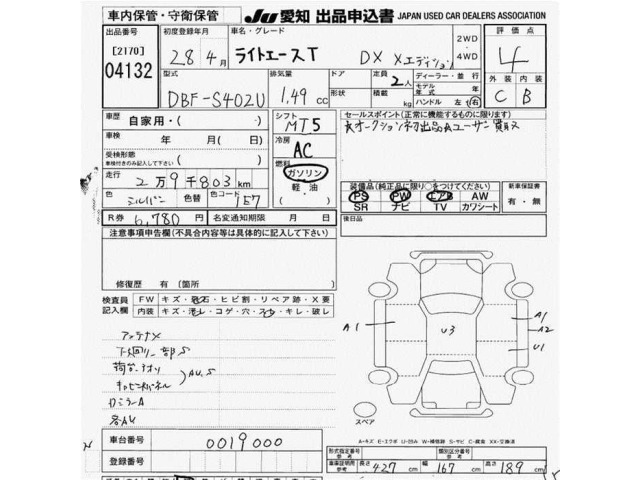 車内保管・守衛保管 JU 愛知 出品申込書 JAPAN USED CAR DEALERS ASSOCIATION
出品番号 初度登録年月 車名・グレード 2WD・4WD 評価点
[2170]
04132 28年4月 ライトエースT DX Xエディション 4
型式 排気量 ドア 定員 2人 ディーラー・並行 外装 内装
DBF-S402U 1.49cc 形状 積載 kg モデル年式 年 C B
ハンドル 左 右
車歴 自家用・( ・ ) シフト MT5 セールスポイント(正常に機能するものに限ります)
車検 年 月(日) 冷房 AC
受検形態 車検付きのみ記入下さい ( )
走行 2万9千803km 燃料 ガソリン・軽油・( )
色 シルバー 色替 色コード 1E7
装備品(純正品に限り○をつけてください) 新車保証書
PS PW エアB AW 有・無
SR ナビ TV カワシート
R券 6,780円 名変通知期限 月 日 後日品
注意事項申告欄(不具合内容等は具体的に記入して下さい)
修復歴 有 [箇所
検査員記入欄 FW キズ・飛石・ヒビ割・リペア跡・X要
内装 キズ・汚レ・コゲ・穴・スレ・キレ・破レ
A1 U3 A1 A2 U1
アンテナX
AU,S
カミラーA
各AU
スペア
A-キズ E-エクボ U-凹み W-補修跡 S-サビ C-腐食 XX-交換済
車台番号 0019000
登録番号
形式指定番号 参考 類別区分番号 参考
車庫証明用 参考 長さ 427cm 幅 167cm 高さ 189cm